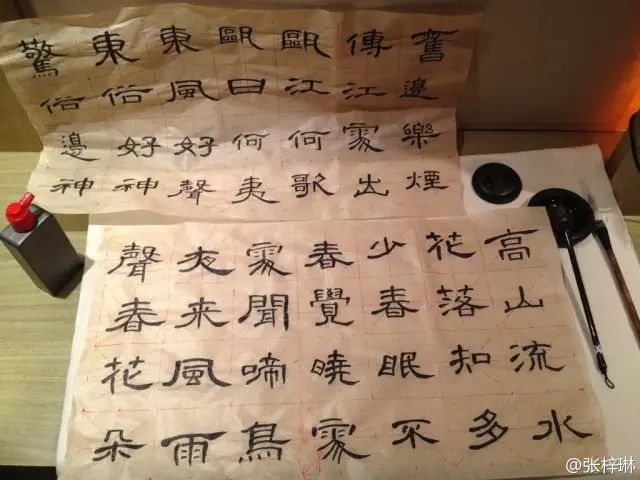 邊樂煙
傳江處出
甌江何歌
甌曰何夷
東風好聲
東俗好神
驚俗邊神
高山流水
花落知多
少春眠不
春覺曉處
處聞啼鳥
夜来風雨
聲春花朵
@张梓琳